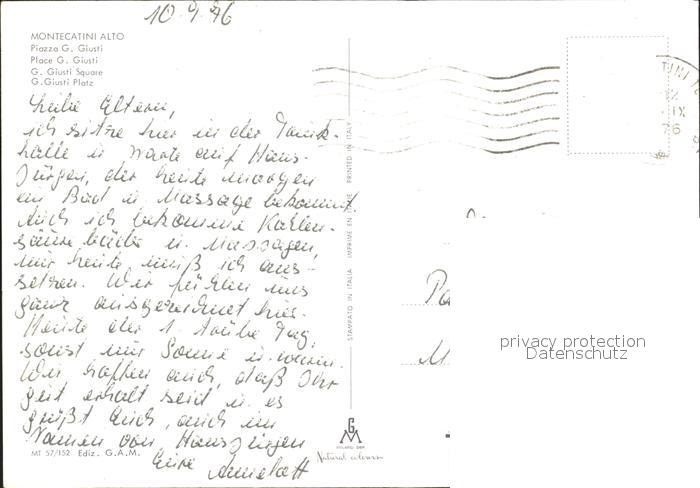 10.9.76
MONTECATINI ALTO
Piazza G. Giusti
Place G. Giusti
G. Giusti Square
G. Giusti Platz
Liebe Eltern,
ich sitze hier in der Trink-
halle u. warte auf Hans-
Jürgen, der heute morgen
ein Bad u. Massage bekommt.
Auch ich bekomme Kohlen-
säure bäder u. Massagen,
nur heute muß ich aus-
setzen. Wir fühlen uns
ganz ausgezeichnet hier.
Heute der 1. trübe Tag,
sonst nur Sonne u. warm.
Wir hoffen auch, daß Ihr
gut erhalt seid u. es
grüßt Euch, auch im
Namen von Hansjürgen
Eure Annelott
MT 57/152 Ediz. G.A.M.
STAMPATO IN ITALIA IMPRIMÉ EN ITALIE PRINTED IN ITALY
GAM
Natural colours
IX
76
Pa
M
privacy protection
Datenschutz